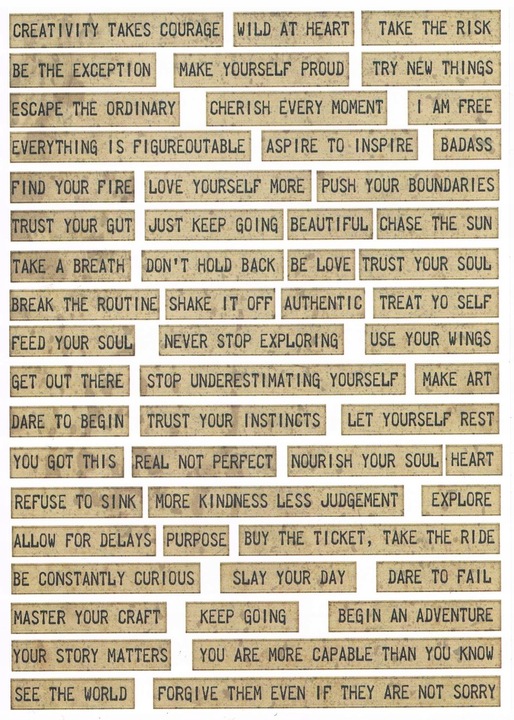 CREATIVITY TAKES COURAGE WILD AT HEART TAKE THE RISK
BE THE EXCEPTION MAKE YOURSELF PROUD TRY NEW THINGS
ESCAPE THE ORDINARY CHERISH EVERY MOMENT I AM FREE
EVERYTHING IS FIGUREOUTABLE ASPIRE TO INSPIRE BADASS
FIND YOUR FIRE LOVE YOURSELF MORE PUSH YOUR BOUNDARIES
TRUST YOUR GUT JUST KEEP GOING BEAUTIFUL CHASE THE SUN
TAKE A BREATH DON'T HOLD BACK BE LOVE TRUST YOUR SOUL
BREAK THE ROUTINE SHAKE IT OFF AUTHENTIC TREAT YO SELF
FEED YOUR SOUL NEVER STOP EXPLORING USE YOUR WINGS
GET OUT THERE STOP UNDERESTIMATING YOURSELF MAKE ART
DARE TO BEGIN TRUST YOUR INSTINCTS LET YOURSELF REST
YOU GOT THIS REAL NOT PERFECT NOURISH YOUR SOUL HEART
REFUSE TO SINK MORE KINDNESS LESS JUDGEMENT EXPLORE
ALLOW FOR DELAYS PURPOSE BUY THE TICKET, TAKE THE RIDE
BE CONSTANTLY CURIOUS SLAY YOUR DAY DARE TO FAIL
MASTER YOUR CRAFT KEEP GOING BEGIN AN ADVENTURE
YOUR STORY MATTERS YOU ARE MORE CAPABLE THAN YOU KNOW
SEE THE WORLD FORGIVE THEM EVEN IF THEY ARE NOT SORRY